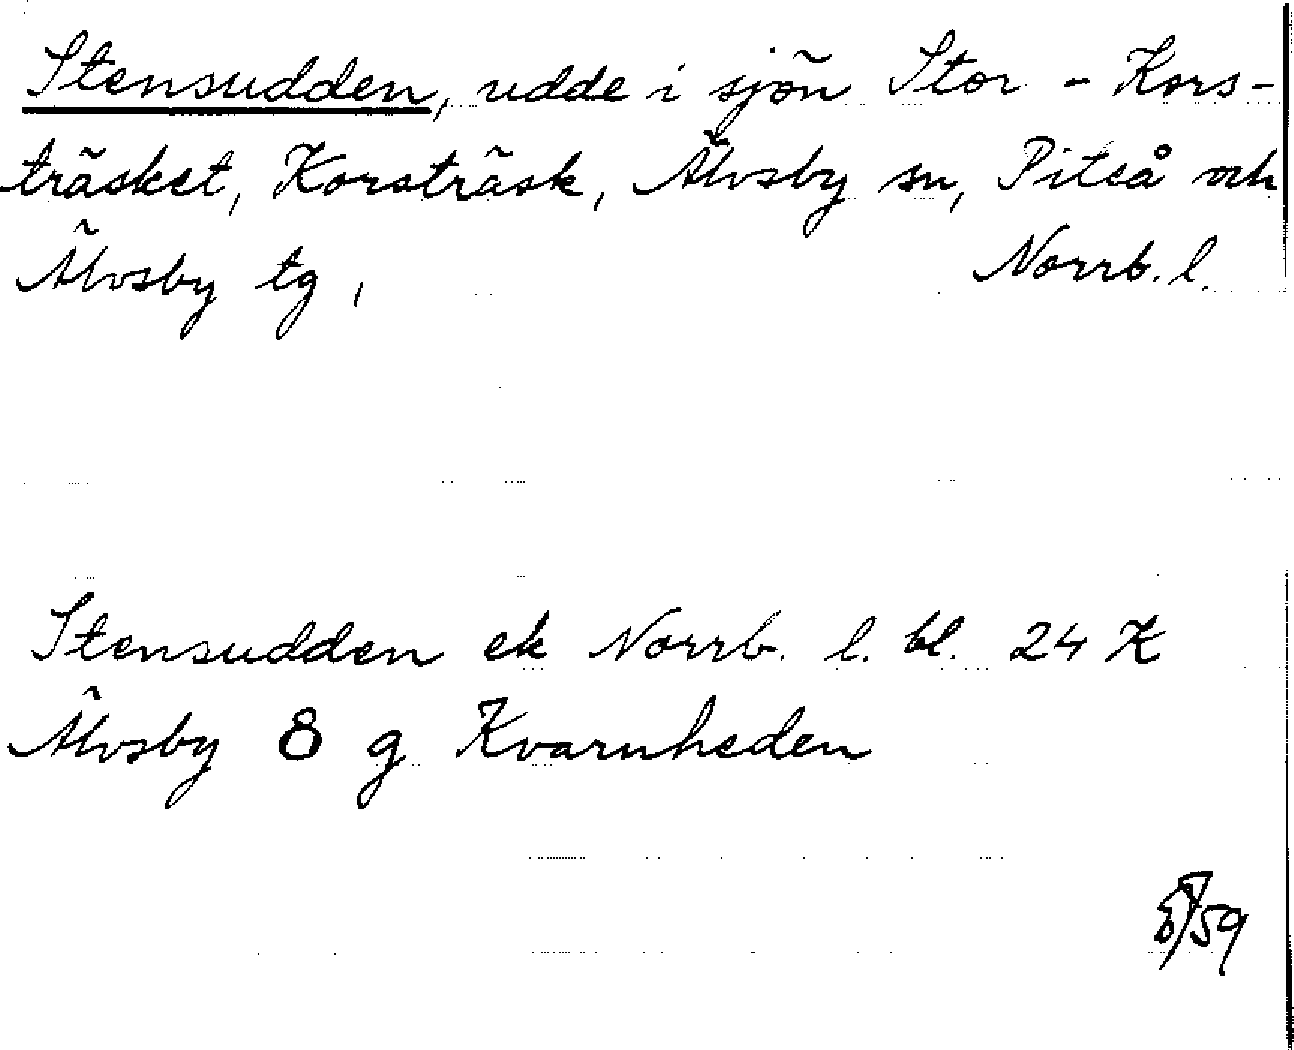 Stensudden, udde i sjön Stor-Kors-
träsket, Korsträsk, Älvsby sn, Piteå och
Älvsby tg, Norrb. l.
Stensudden ek Norrb. l. bl. 24 K
Älvsby 8 g Kvarnheden